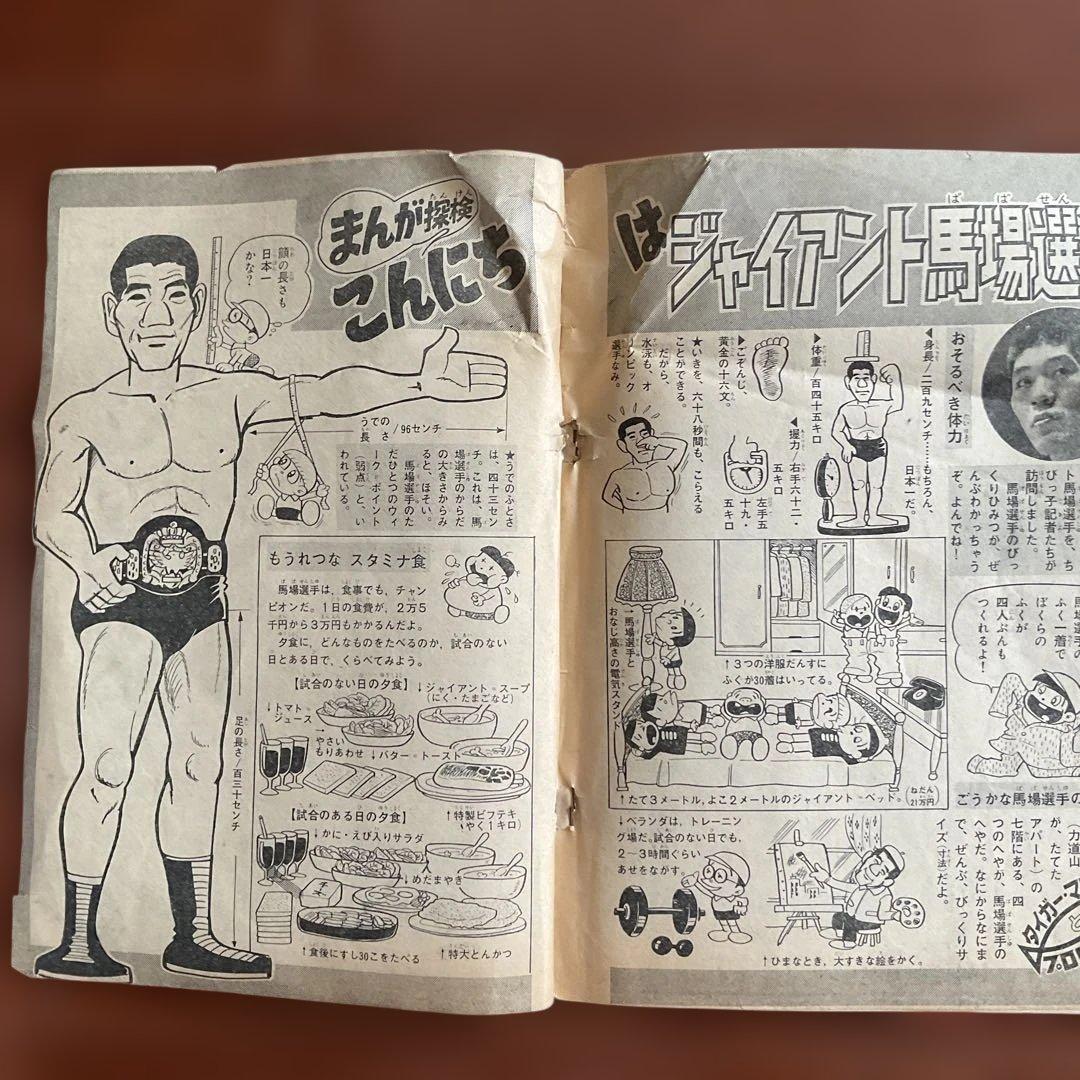 まんが探検
こんにち
はジャイアント馬場選
顔の長さも
日本一
かな？
うでの
長さ/96センチ
★うでのふとさ
は、四十三セン
チ。これは、馬
場選手のからだ
の大きさからみ
ると、ほそい。
馬場選手のた
だひとつのウィ
ーク・ポイント
（弱点）とい
われている。
足の長さ/百三十センチ
もうれつな スタミナ食
馬場選手は、食事でも、チャン
ピオンだ。1日の食費が、2万5
千円から3万円もかかるんだよ。
夕食に、どんなものをたべるのか、試合のない
日とある日で、くらべてみよう。
【試合のない日の夕食】
↓ジャイアント＝スープ
（にく・たまごなど）
↓トマト＝
ジュース
→
やさい
もりあわせ
↓バター＝トースト
↑特製ビフテキ
（やく1キロ）
【試合のある日の夕食】
↓かに・えび入りサラダ
↓めだまやき
↑食後にすし30こをたべる
↑特大とんかつ
おそるべき体力
◀身長/二百九センチ……もちろん、
日本一だ。
▶体重/百四十五キロ
◀握力/右手六十二・
五キロ
左手五
十九・
五キロ
▶ごぞんじ、
黄金の十六文。
★いきを、六十八秒間も、こらえる
ことができる。
だから、
水泳も、オ
リンピック
選手なみ。
ト馬場選手を、ち
びっ子記者たちが
訪問しました。
馬場選手のびっ
くりひみつが、ぜ
んぶわかっちゃう
ぞ。よんでね！
→馬場選手と
おなじ高さの電気スタンド
↑3つの洋服だんすに
ふくが30着はいってる。
↑たて3メートル，よこ2メートルのジャイアント＝ベッド。
（ねだん
21万円）
馬場選手の
ふく一着で
ぼくらの
ふくが
四人ぶんも
つくれるよ！
ごうかな馬場選手の
（力道山
が、たてた
アパート）の
七階にある、四
つのへやが、馬場選手の
へやだ。なにからなにま
で、ぜんぶ、びっくりサ
イズ（寸法）だよ。
↓ベランダは、トレーニン
グ場だ。試合のない日でも、
2〜3時間ぐらい
あせをながす。
↑ひまなとき，大すきな絵をかく。
タイガー・マ
と
プロ